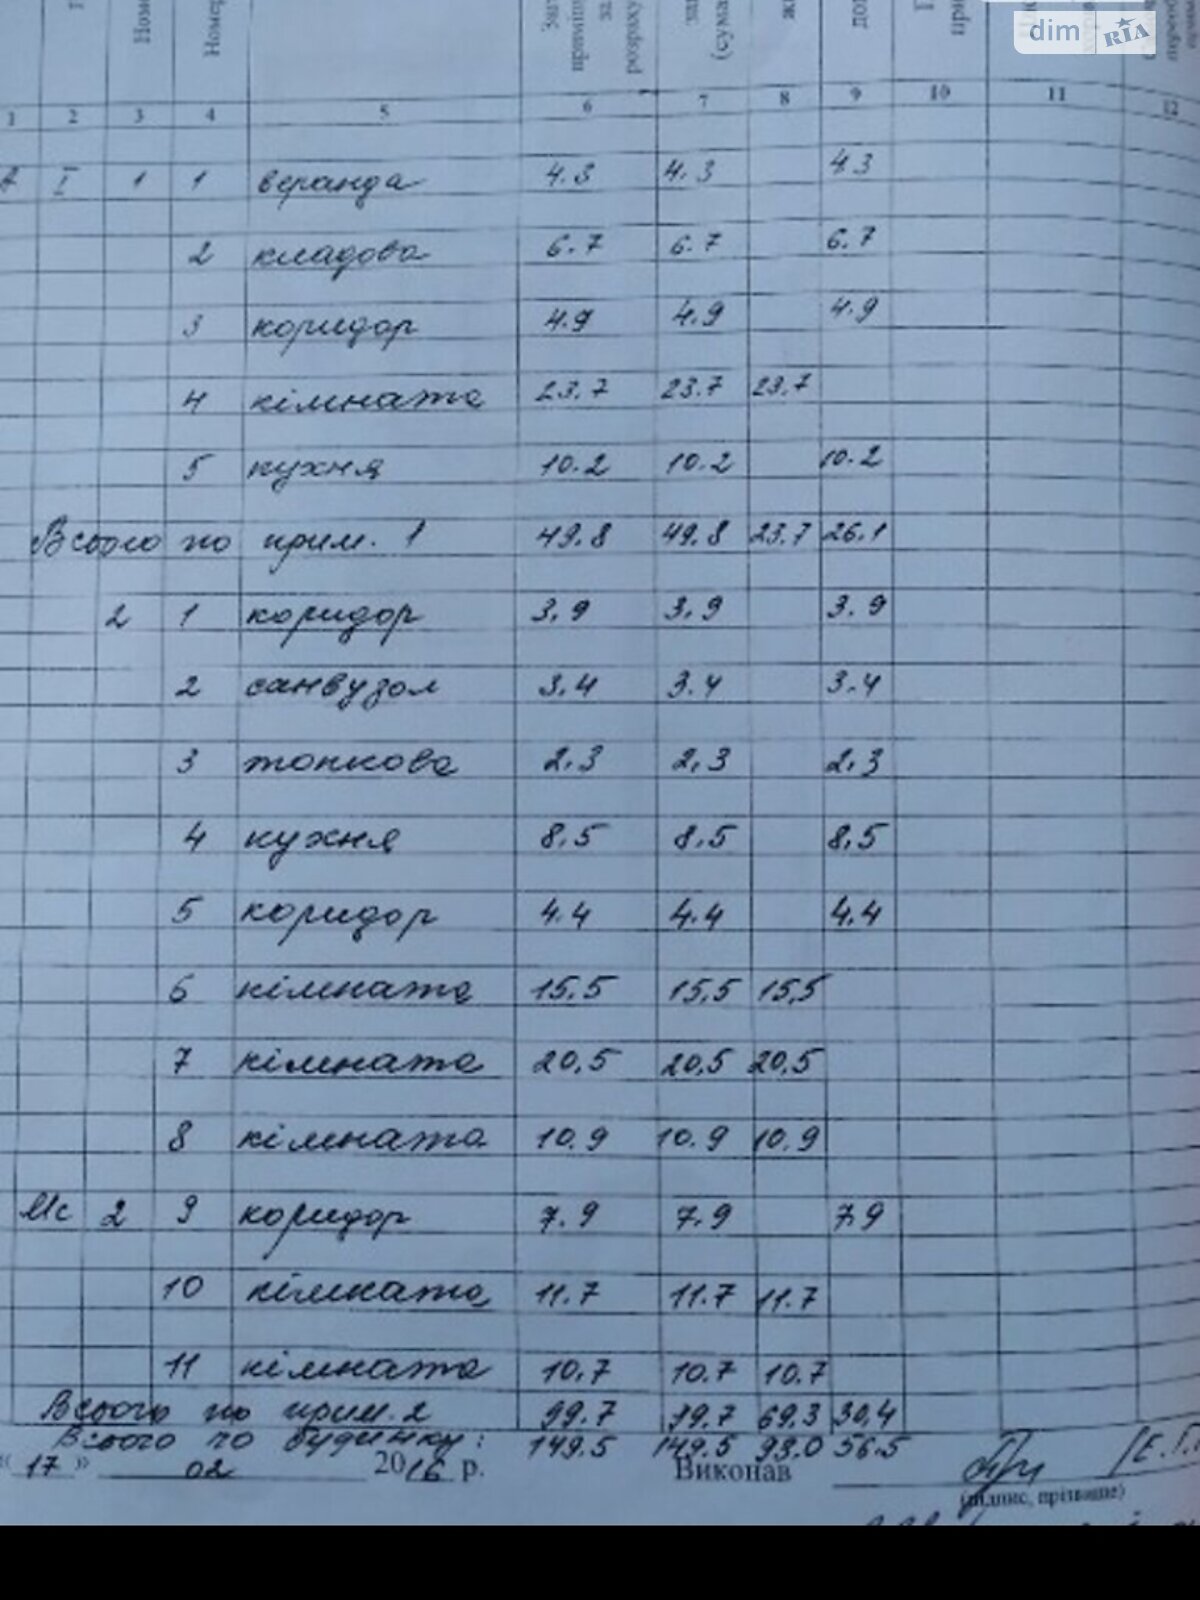 dim RIA
1 2 3 4 5 6 7 8 9 10 11 12
А I 1 1 веранда 4.3 4.3 4.3
2 кладова 6.7 6.7 6.7
3 коридор 4.9 4.9 4.9
4 кімната 23.7 23.7 23.7
5 кухня 10.2 10.2 10.2
Всього по прим. 1 49.8 49.8 23.7 26.1
2 1 коридор 3.9 3.9 3.9
2 санвузол 3.4 3.4 3.4
3 топкова 2.3 2.3 2.3
4 кухня 8.5 8.5 8.5
5 коридор 4.4 4.4 4.4
6 кімната 15.5 15.5 15.5
7 кімната 20.5 20.5 20.5
8 кімната 10.9 10.9 10.9
Мс 2 9 коридор 7.9 7.9 7.9
10 кімната 11.7 11.7 11.7
11 кімната 10.7 10.7 10.7
Всього по прим. 2 99.7 99.7 69.3 30.4
Всього по будинку: 149.5 149.5 93.0 56.5
« 17 » 02 2016 р. Виконав
(підпис, прізвище)